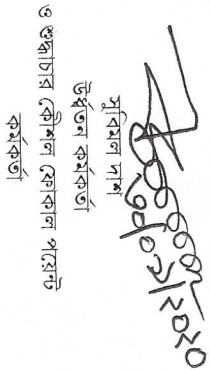 সুবিমল দাশ
উর্ধ্বতন কর্মকর্তা
ও শুদ্ধাচার কৌশল ফোকাল পয়েন্ট
কর্মকর্তা